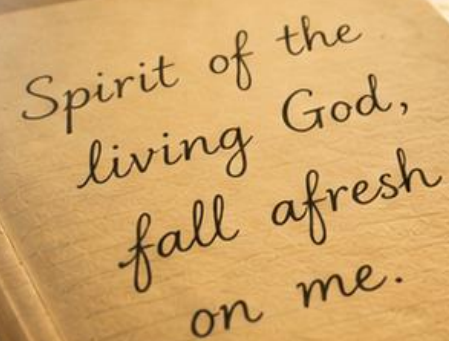 Spirit of the
living God,
fall afresh
on me.